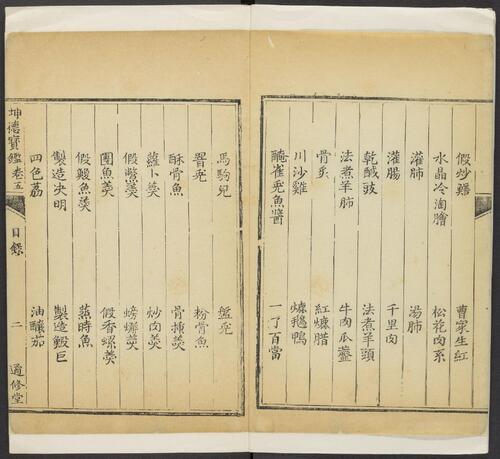 假炒鱔 曹家生紅
水晶冷淘膾 松花肉糸
灌肺 湯肺
灌腸 千里肉
乾鹹豉 法煮羊頭
法煮羊肺 牛肉瓜虀
骨炙 紅爊腊
川沙雞 爊鵝鴨
醃雀兎魚醬 一了百當
馬駒兒 盤兎
署兎 粉骨魚
酥骨魚 骨揷羹
蘿卜羹 炒肉羹
假鱉羹 螃蠏羹
團魚羹 假香螺羹
假鰒魚羹 蒸時魚
製造决明 製造鰕巨
四色荔 油釀茄
坤德寶鑑卷五 目錄 二 適修堂